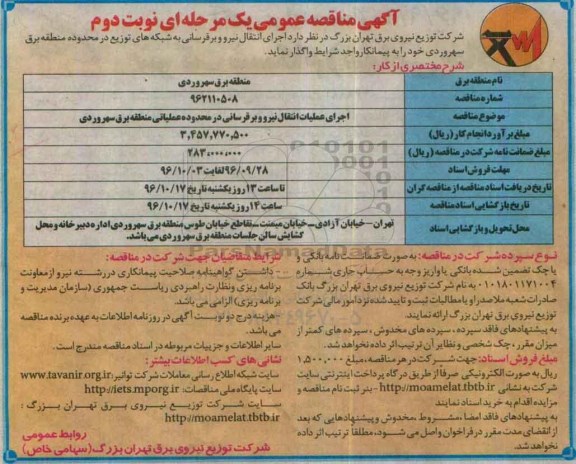 آگهی مناقصه عمومی یک مرحله ای نوبت دوم
شرکت توزیع نیروی برق تهران بزرگ در نظر دارد اجرای انتقال نیرو و برقرسانی به شبکه های توزیع در محدوده منطقه برق
سهروردی خود را به پیمانکار واجد شرایط واگذار نماید.
شرح مختصری از کار:
نام منطقه برق منطقه برق سهروردی
شماره مناقصه ۹۶۲۱۱۰۵۰۸
موضوع مناقصه اجرای عملیات انتقال نیرو و برقرسانی در محدوده عملیاتی منطقه برق سهروردی
مبلغ برآورد انجام کار (ریال) ۳,۴۵۷,۷۷۰,۵۰۰
مبلغ ضمانت نامه شرکت در مناقصه (ریال) ۲۸۳,۰۰۰,۰۰۰
مهلت فروش اسناد ۹۶/۰۹/۲۸ لغایت ۹۶/۱۰/۰۳
تاریخ دریافت اسناد مناقصه از مناقصه گران تا ساعت ۱۳ روز یکشنبه تاریخ ۹۶/۱۰/۱۷
تاریخ بازگشایی اسناد مناقصه ساعت ۱۴ روز یکشنبه تاریخ ۹۶/۱۰/۱۷
محل تحویل و بازگشایی اسناد تهران – خیابان آزادی – خیابان میمنت – تقاطع خیابان طوس منطقه برق سهروردی اداره دبیرخانه و محل
گشایش سالن جلسات منطقه برق سهروردی می باشد.
نوع سپرده شرکت در مناقصه: به صورت ضمانت نامه بانکی و
یا چک تضمین شده بانکی یا واریز وجه به حساب جاری شماره
۰۱۰۱۸۰۱۱۷۱۰۰۴ به نام شرکت توزیع نیروی برق تهران بزرگ بانک
صادرات شعبه ملاصدرا و یا مطالبات ثبت و تایید شده نزد امور مالی شرکت
توزیع نیروی برق تهران بزرگ ارائه نمایند.
به پیشنهادهای فاقد سپرده، سپرده های مخدوش، سپرده های کمتر از
میزان مقرر، چک شخصی و نظایر آن ترتیب اثر داده نخواهد شد.
مبلغ فروش اسناد: جهت شرکت در هر مناقصه، مبلغ ۱,۵۰۰,۰۰۰
ریال به صورت الکترونیکی صرفا از طریق درگاه پرداخت اینترنتی سایت
شرکت به نشانی http://moamelat.tbtb.ir - بنر ثبت نام مناقصه و
مزایده اقدام به خرید اسناد نمایند
به پیشنهادهای فاقد امضا، مشروط، مخدوش و پیشنهادهایی که بعد
از انقضای مدت مقرر در فراخوان واصل می شود، مطلقا ترتیب اثر داده
نخواهد شد.
شرایط متقاضیان جهت شرکت در مناقصه:
- داشتن گواهینامه صلاحیت پیمانکاری در رشته نیرو از معاونت
برنامه ریزی ونظارت راهبردی ریاست جمهوری (سازمان مدیریت و
برنامه ریزی) الزامی می باشد.
- هزینه درج دو نوبت آگهی در روزنامه اطلاعات به عهده برنده مناقصه
می باشد.
سایر اطلاعات و جزییات مربوطه در اسناد مناقصه مندرج است.
نشانی های کسب اطلاعات بیشتر:
سایت شبکه اطلاع رسانی معاملات شرکت توانیر: www.tavanir.org.ir
سایت پایگاه ملی مناقصات: http://iets.mporg.ir
سایت شرکت توزیع نیروی برق تهران بزرگ:
http://moamelat.tbtb.ir
روابط عمومی
شرکت توزیع نیروی برق تهران بزرگ (سهامی خاص)